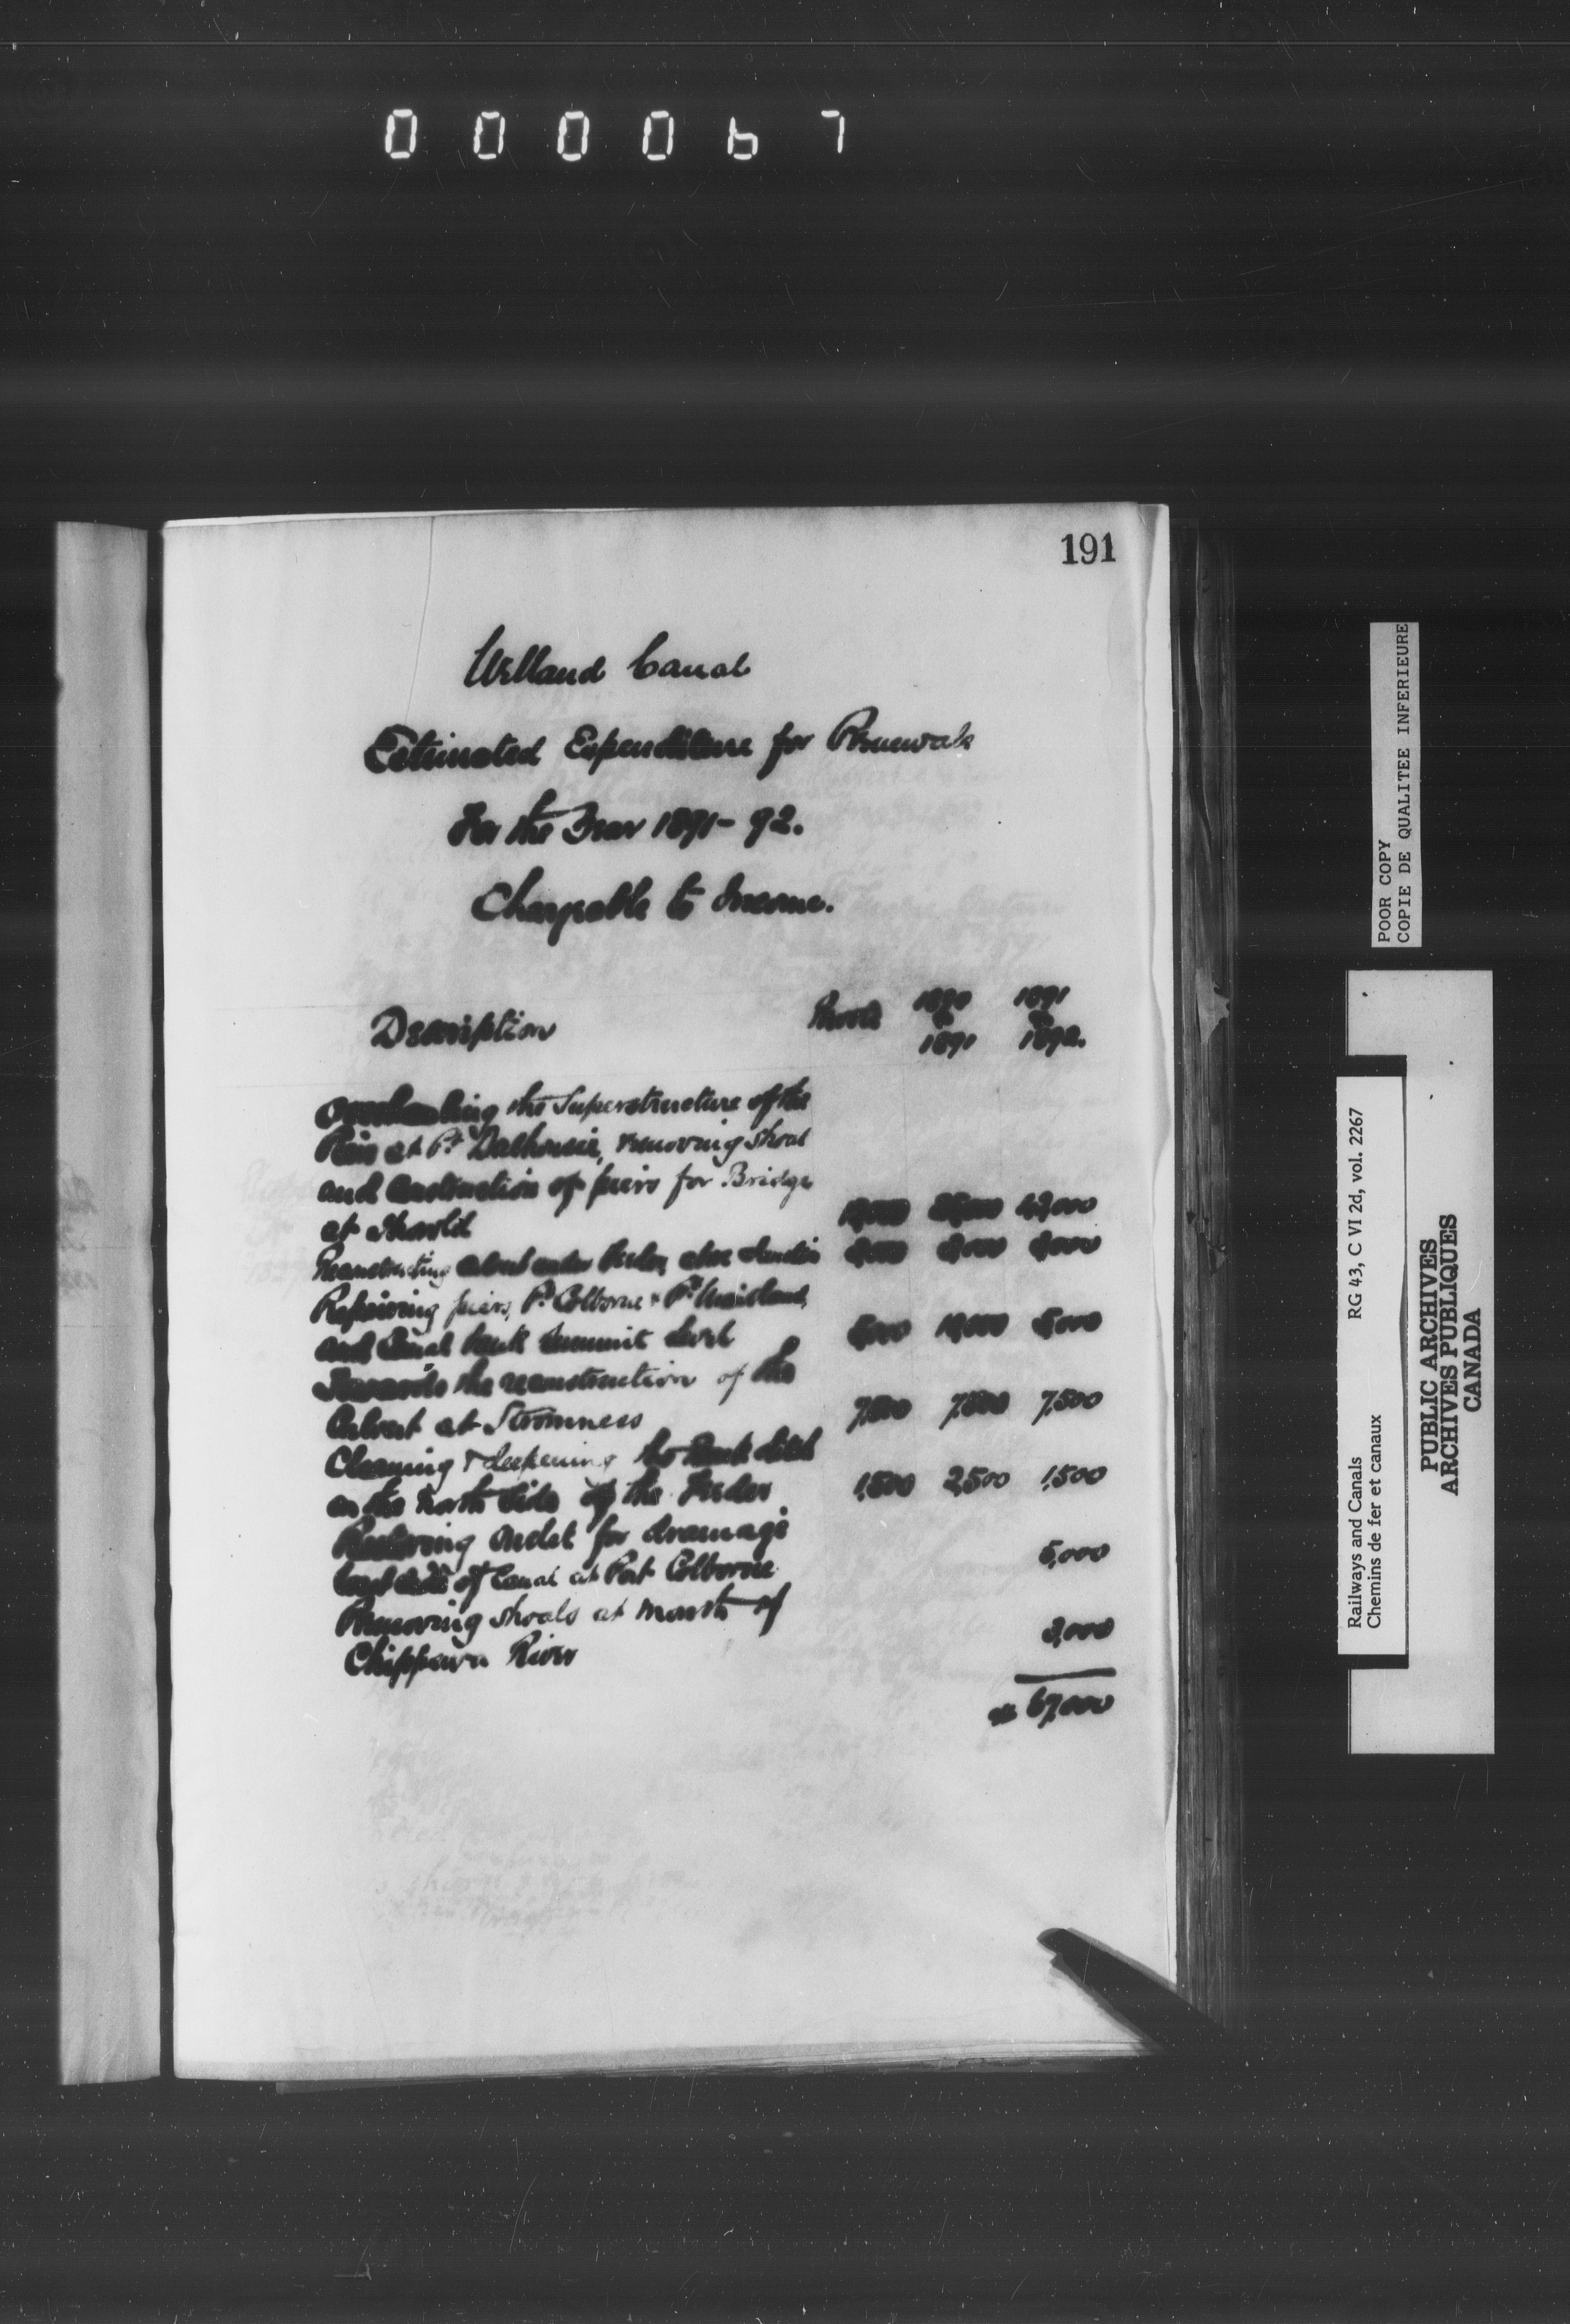 000067
191
Welland Canal
Estimated Expenditure for Renewals
For the Year 1891-92.
Chargeable to Income.
Description 1890 1891
to to
1891 1892.
Overhauling the Superstructure of the
Piers at Pt Dalhousie, removing shoal
and construction of piers for Bridge
at Thorold 42,000
Reconstructing culvert under Feeder,
Repairing piers, Pt Colborne & Pt Maitland,
and Canal bank Summit level 10,000
Towards the reconstruction of the
Culvert at Stromness 7,500 7,500 7,500
Cleaning & deepening the back ditch
on the North Side of the Feeder 1,500 2,500 1,500
outlet for drainage
of Canal at Port Colborne 5,000
Removing shoals at mouth of
Chippawa River 3,000
67,000
POOR COPY
COPIE DE QUALITEE INFERIEURE
Railways and Canals RG 43, C VI 2d, vol. 2267
Chemins de fer et canaux
PUBLIC ARCHIVES
ARCHIVES PUBLIQUES
CANADA